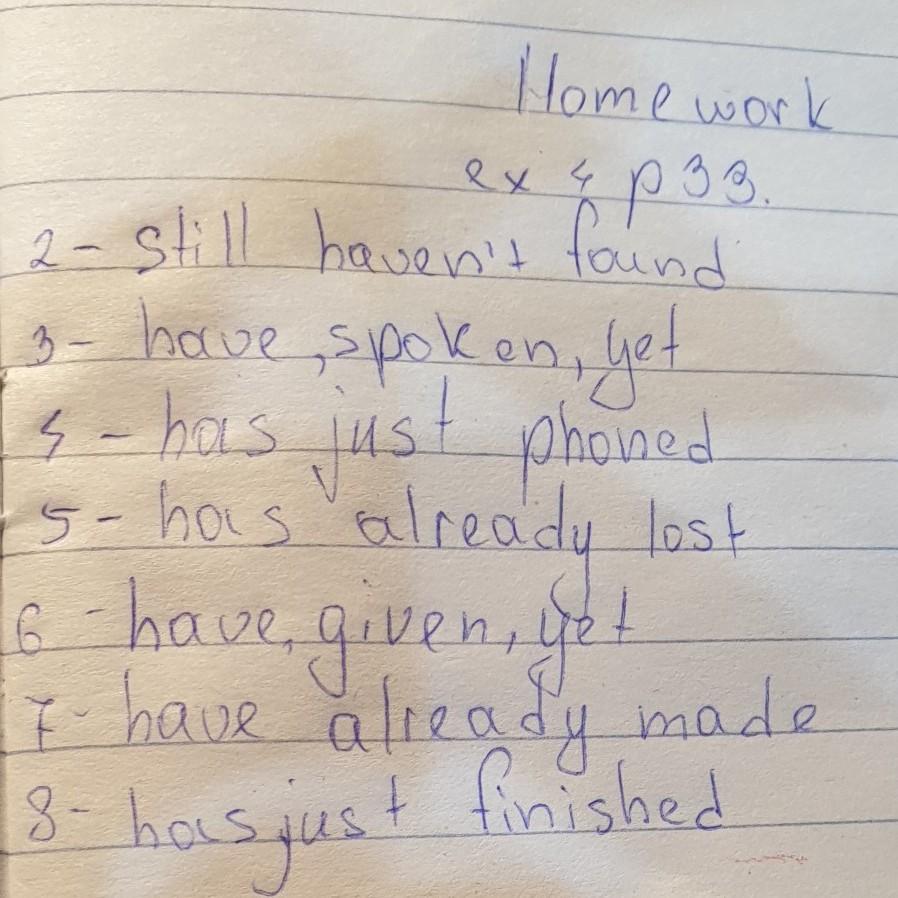 Homework
ex 4 p 33.
2 - still haven't found
3 - have, spoken, yet
4 - has just phoned
5 - has already lost
6 - have, given, yet
7 - have already made
8 - has just finished